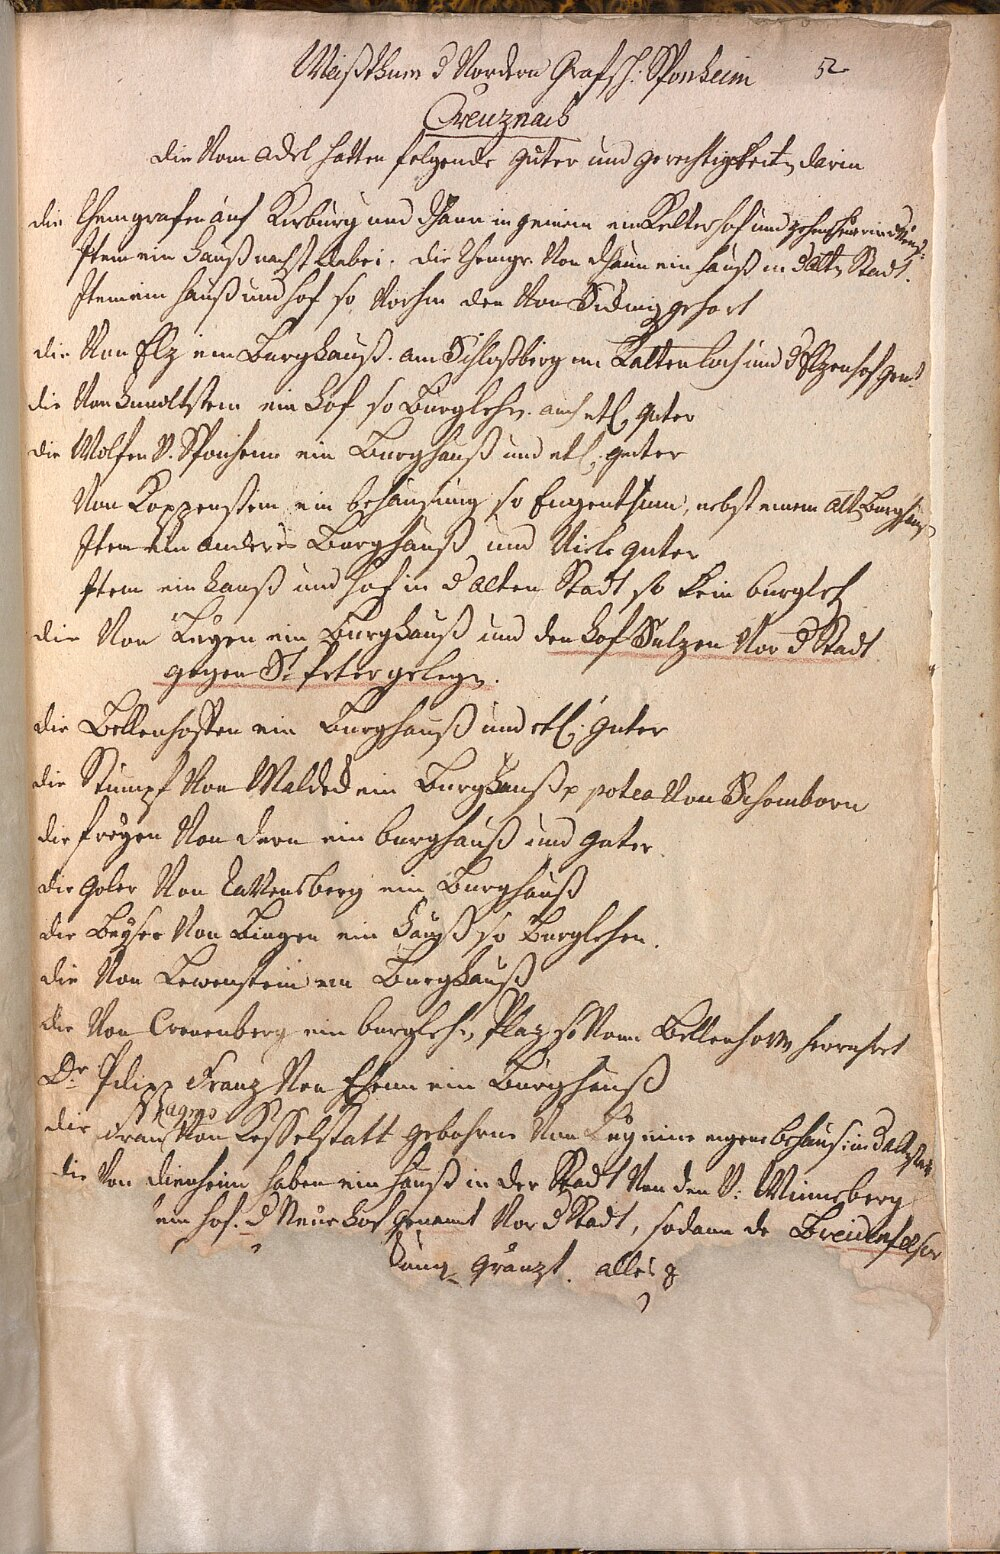 Weißthum d Vordern Grafsch: Sponheim 52
Creuznach
die Vom adel hatten folgende guter und gerechtigkeit darin
die Rheingrafen auf Kirburg und Dhaun in genein ein Kelterhof und
Item ein hauß nechst dabei. die Rheingr. Von Dhaun ein hauß in d alt Stadt.
Item ein hauß und hof so Vorhin den Von Sicking gehort
die Von Elz ein Burghauß. am Schloßberg im Kaltenloch und d Elzenhof gen.
die Von hundtstein ein hof so Burglehn. auch etl. guter
die Wolfen V. Sponheim ein Burghauß und etl. guter
Von Koppenstein ein behausung so Eugenthum, nebst einem alt Burghauß
Item ein anderes Burghauß und Viele guter
Item ein hauß und hof in d alten Stadt so kein burgleh
die Von Leyen ein Burghauß und den hof Sulzen Vor d Stadt
gegen St Peter gelegn.
die Bellenhoffen ein Burghauß und etl: guter
die Stumpf Von Waldeck ein Burghauß postea Von Schomborn
die freyen Von dern ein burghauß und guter
die Goler Von Ravensberg ein Burghauß
die Beyser Von Bingen ein hauß so Burglehen.
die Von Lewenstein ein Burghauß
die Von Cronenberg ein burglehn Plaz so Vom Bellenhoven herruhret
Dr. Pilipp Franz Von Ehem ein Burghauß
Wagnes
die Frau Von Kesselstatt gebohrne Von Ley eine eigene behaus: in d altstat
die Von dienheim haben ein hauß in der Stadt Von den V: Winneberg
ein hof. d Neue hof genannt Vor d Stadt, sodann de Breidenfelser
gränzt. alles